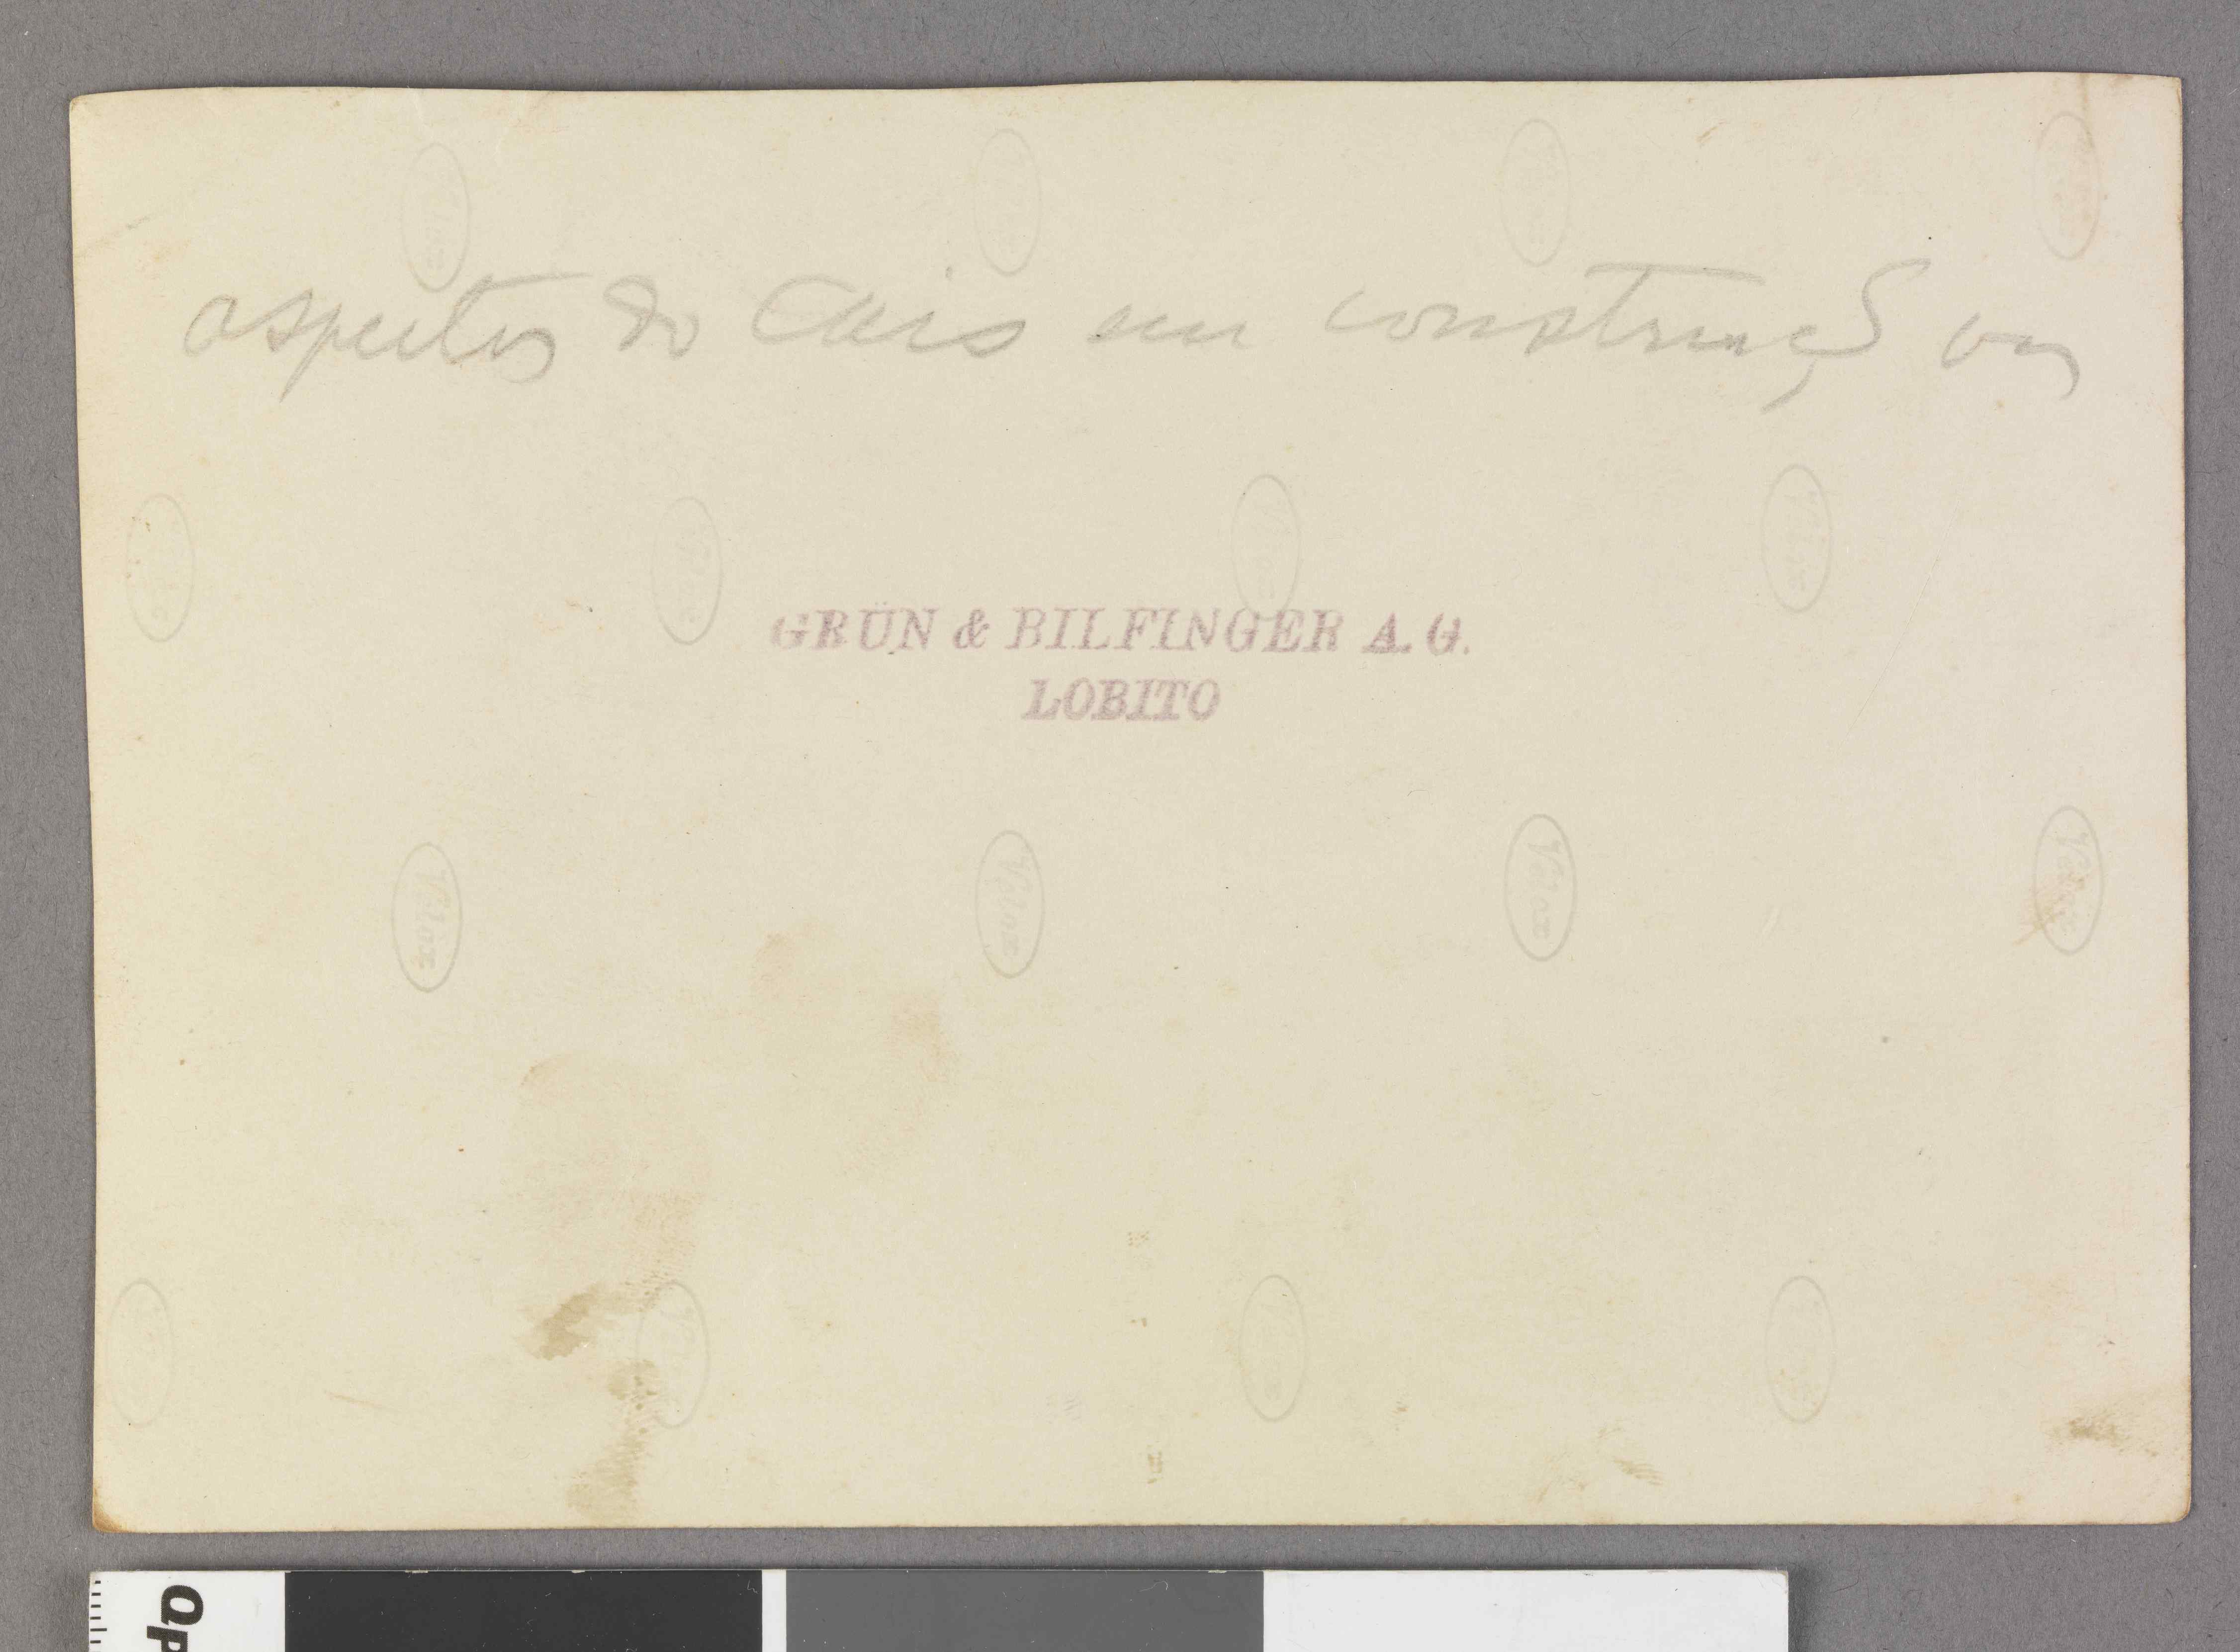 aspectos do Cais em construção
GRÜN & BILFINGER A. G.
LOBITO
Velox
Velox
Velox
Velox
Op